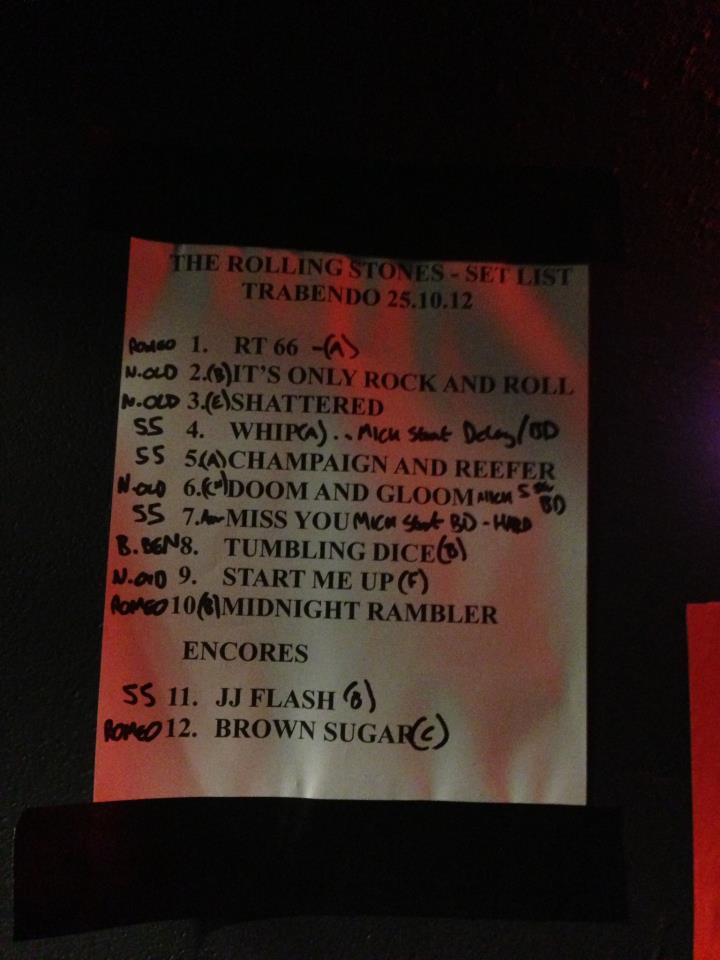 THE ROLLING STONES - SET LIST
TRABENDO 25.10.12
ROMEO 1. RT 66 -(A)
N.OLD 2.(B)IT'S ONLY ROCK AND ROLL
N.OLD 3.(E)SHATTERED
SS 4. WHIP(A)..MICK Start Delay/BD
SS 5(A)CHAMPAIGN AND REEFER
N.OLD 6. DOOM AND GLOOM MICK BD
SS 7. Am MISS YOU MICK Start BD - HARD
B.BEN 8. TUMBLING DICE(B)
N.OLD 9. START ME UP(F)
ROMEO 10(B)MIDNIGHT RAMBLER
ENCORES
SS 11. JJ FLASH(B)
ROMEO 12. BROWN SUGAR(C)